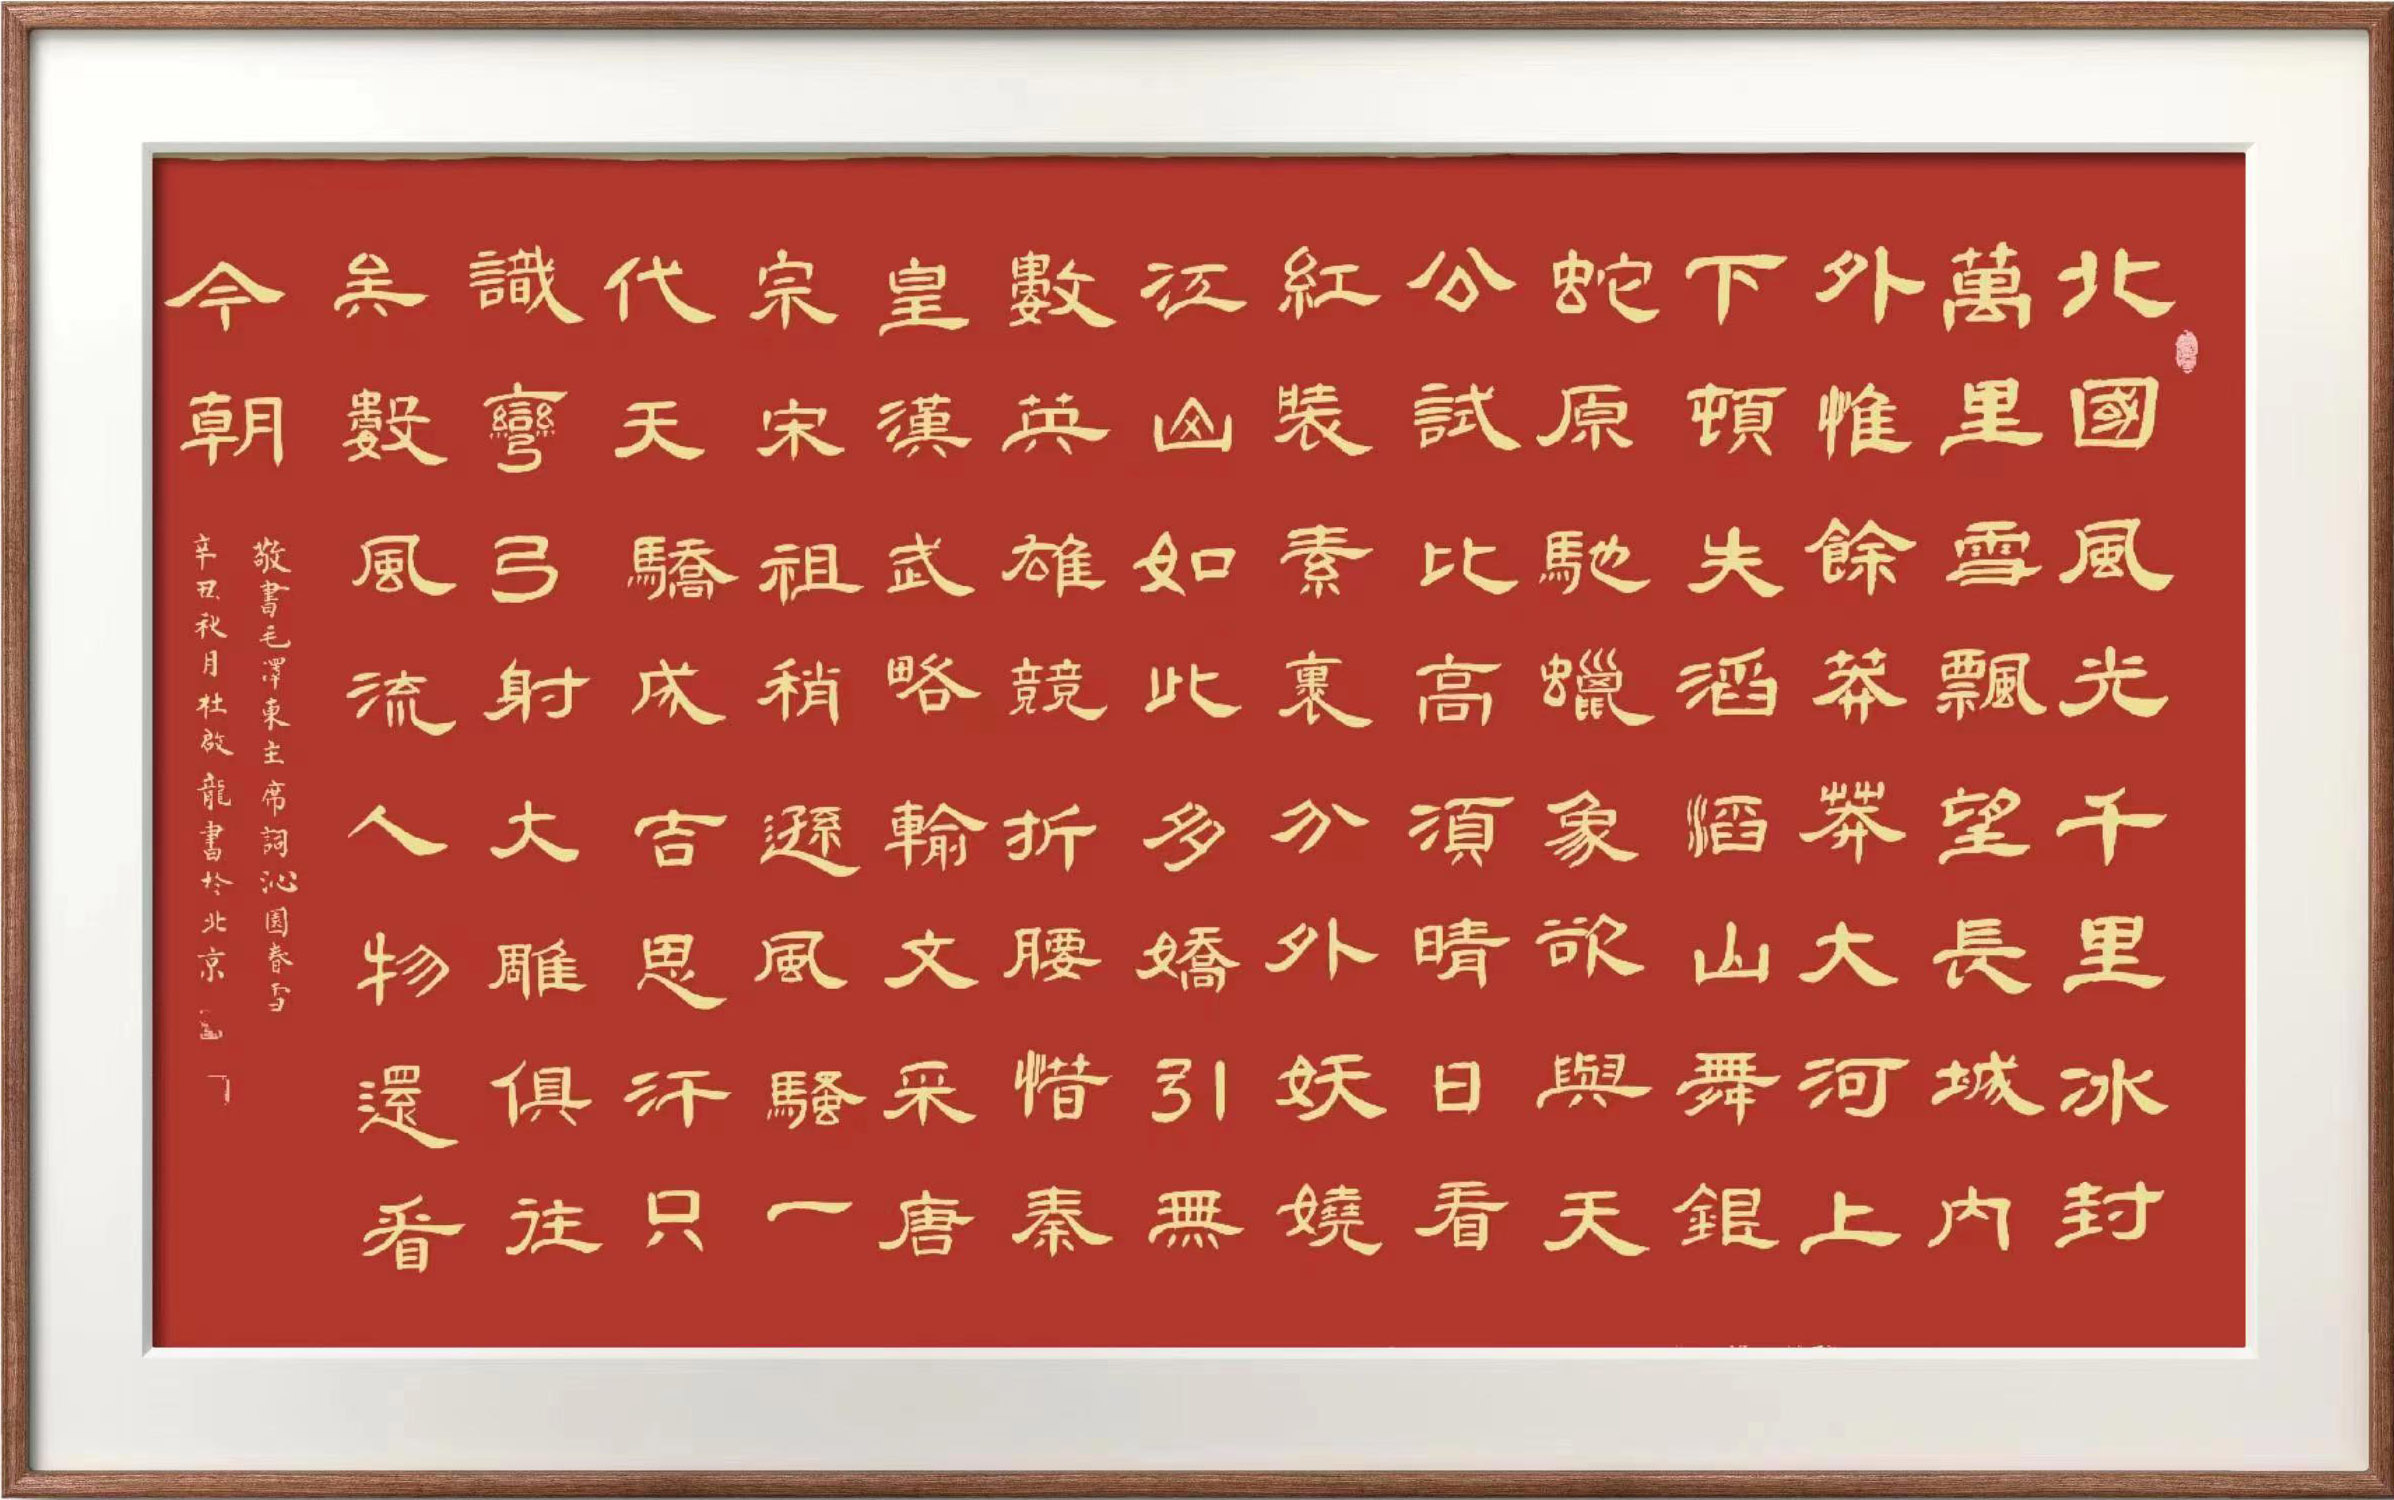 北國風光千里冰封
萬里雪飄望長城内
外惟餘莽莽大河上
下頓失滔滔山舞銀
蛇原馳蠟象欲與天
公試比高須晴日看
紅裝素裹分外妖嬈
江山如此多嬌引無
數英雄競折腰惜秦
皇漢武略輸文采唐
宗宋祖稍遜風騷一
代天驕成吉思汗只
識彎弓射大雕俱往
矣數風流人物還看
今朝
敬書毛澤東主席詞沁園春雪
辛丑秋月杜啟龍書於北京